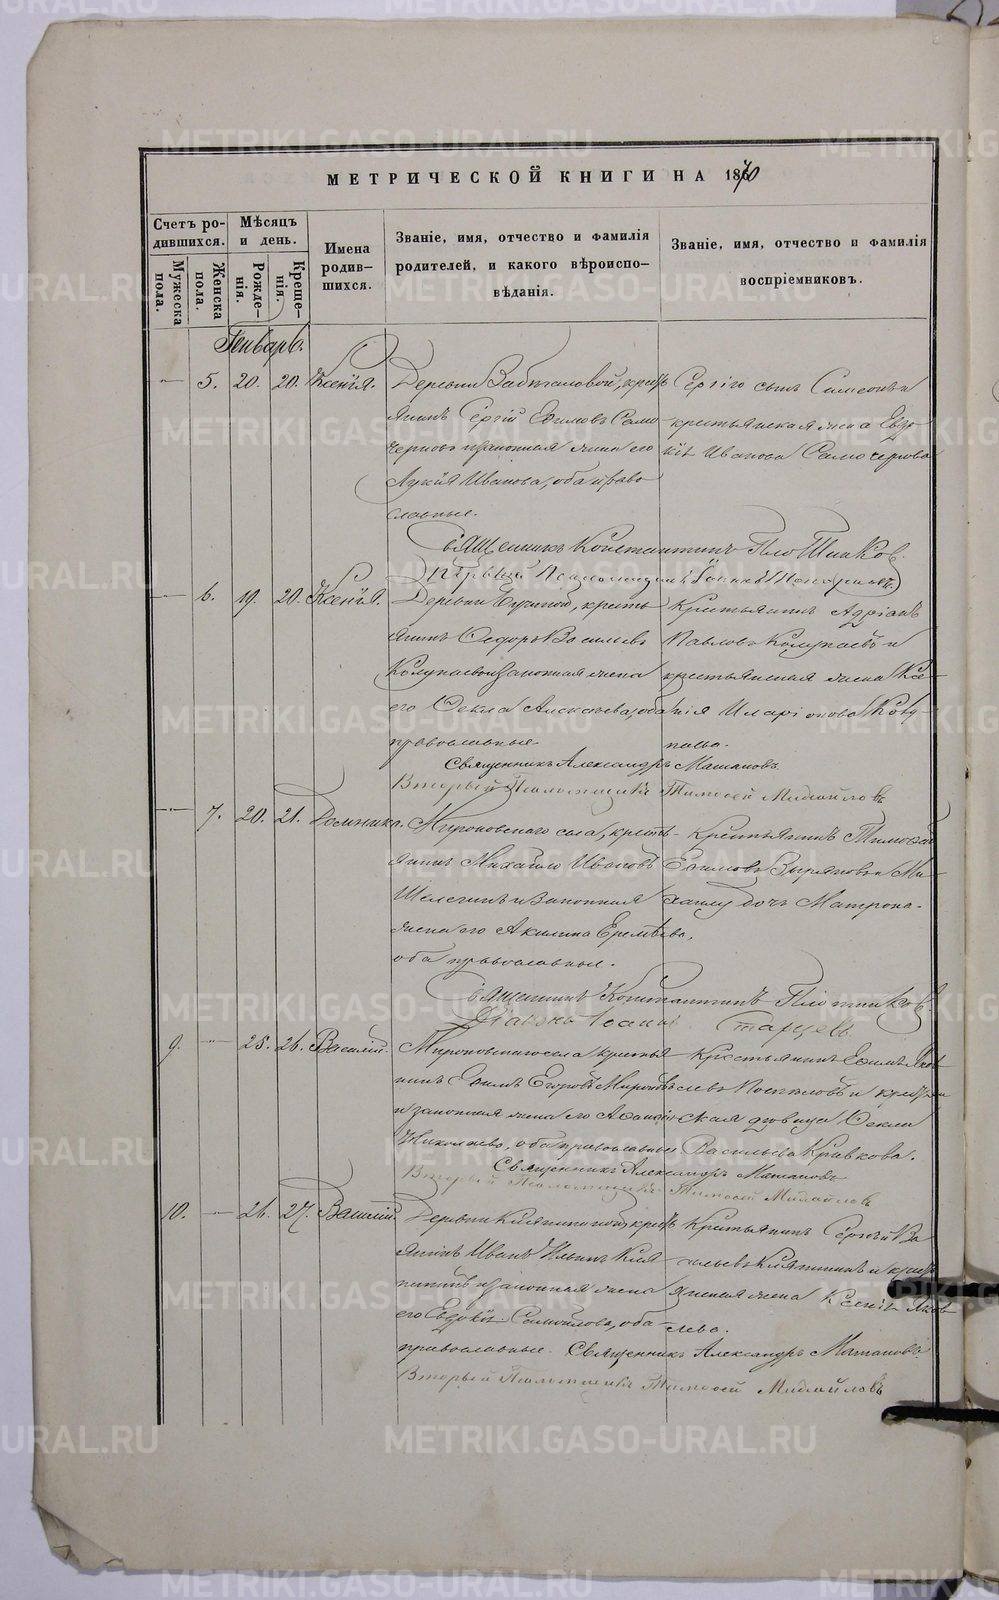 МЕТРИЧЕСКОЙ КНИГИ НА 1870
Счетъ ро-
дившихся.
Мѣсяцъ
и день.
Мужеска
пола.
Женска
пола.
Рожде-
нія.
Креще-
нія.
Имена
родив-
шихся.
Званіе, имя, отчество и фамилія
родителей, и какого вѣроиспо-
вѣданія.
Званіе, имя, отчество и фамилія
воспріемниковъ.
Январь.
5. 20. 20. Ксенія.
Деревни
янинъ Сергій Ефимовъ Само
черновъ и законная жена его
Лукія Иванова, оба право
славные.
Сергія сынъ Симеонъ и
крестьянская жена Евдо
кія Иванова Самочернова
Священникъ Константинъ Плотниковъ.
6. 19. 20. Ксенія.
Деревни крестъ
янинъ Ѳедоръ Васильевъ
Колупаевъ и законная жена
его Ѳекла Алексѣева, оба
православные.
Крестьянинъ Адріанъ
Павловъ Колупаевъ и
крестьянская жена Ксе-
нія Иларіонова Колу-
паева.
Священникъ Александръ Матановъ.
Вторый Псаломщикъ Тимоѳей Михайловъ
7. 20. 21. Домника.
Мироновскаго села, кресть-
янинъ Михайло Ивановъ
Шелегинъ и законная
жена его Акилина Еремѣева,
оба православные.
Крестьянинъ Тимоѳей
Ефимовъ Зыряновъ и Ми-
хаилу дочь Матрона.
Священникъ Константинъ Плотниковъ
Діаконъ Іоаннъ Старцевъ
9. 25. 26. Василій.
Мироновскаго села крестья
нинъ Ефимъ Егоровъ Мироновъ
и законная жена его
Николаева, оба православные
Крестьянинъ Ефимъ Яков
левъ и крестьян
ская дѣвица Ѳекла
Васильева Кривкова.
Священникъ Александръ Матановъ
Вторый Псаломщикъ Тимоѳей Михайловъ
10. 26. 27. Василій.
Деревни крестъ
янинъ Иванъ Ильинъ Кля
пининъ и законная жена
его Евдокія Самойлова, оба
православные.
Крестьянинъ Сергѣй Ва
сильевъ Кляпининъ и крестъ
янская жена Ксенія Яков
лева.
Священникъ Александръ Матановъ
Вторый Псаломщикъ Тимоѳей Михайловъ
METRIKI.GASO-URAL.RU